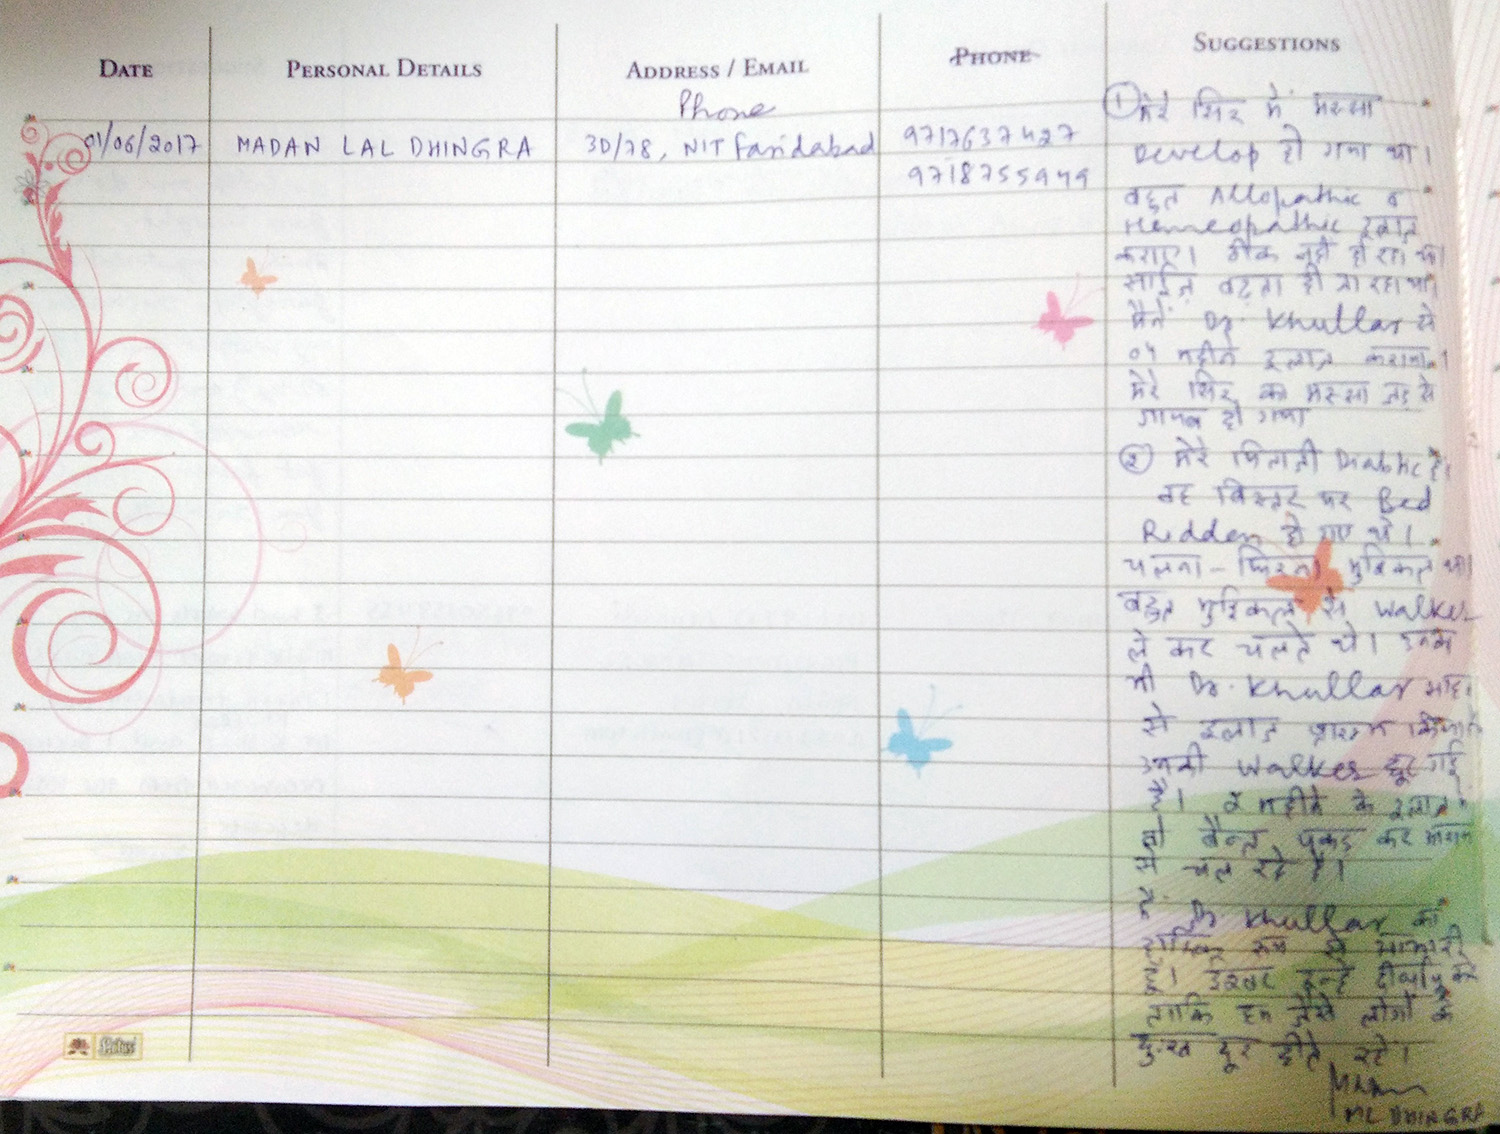 DATE PERSONAL DETAILS ADDRESS / EMAIL PHONE SUGGESTIONS
Phone
01/06/2017 MADAN LAL DHINGRA 3D/78, NIT Faridabad 9717637427
9718755949
① मेरे सिर में मस्सा
Develop हो गया था।
बहुत Allopathic व
Homeopathic इलाज
कराए। ठीक नहीं हो रहा था।
साईज़ बढ़ता ही जा रहा था।
मैंने Dr. Khullar से
04 महीने इलाज कराया।
मेरे सिर का मस्सा जड़ से
गायब हो गया
② मेरे पिताजी Diabtic हैं।
वह बिस्तर पर Bed
Ridden हो गए थे।
चलना-फिरना मुश्किल था।
बहुत मुश्किल से Walker
ले कर चलते थे। उनका
भी Dr. Khullar
से इलाज प्रारम्भ किया
उनकी Walker छूट गई
है। २ महीने के इलाज
वो बैन्त पकड़ कर
से चल रहे हैं।
Dr Khullar का
हार्दिक रूप से आभारी
हूँ। ईश्वर इन्हें दीर्घायु करे
ताकि हम जैसे लोगों के
दुःख दूर होते रहें।
ML DHINGRA